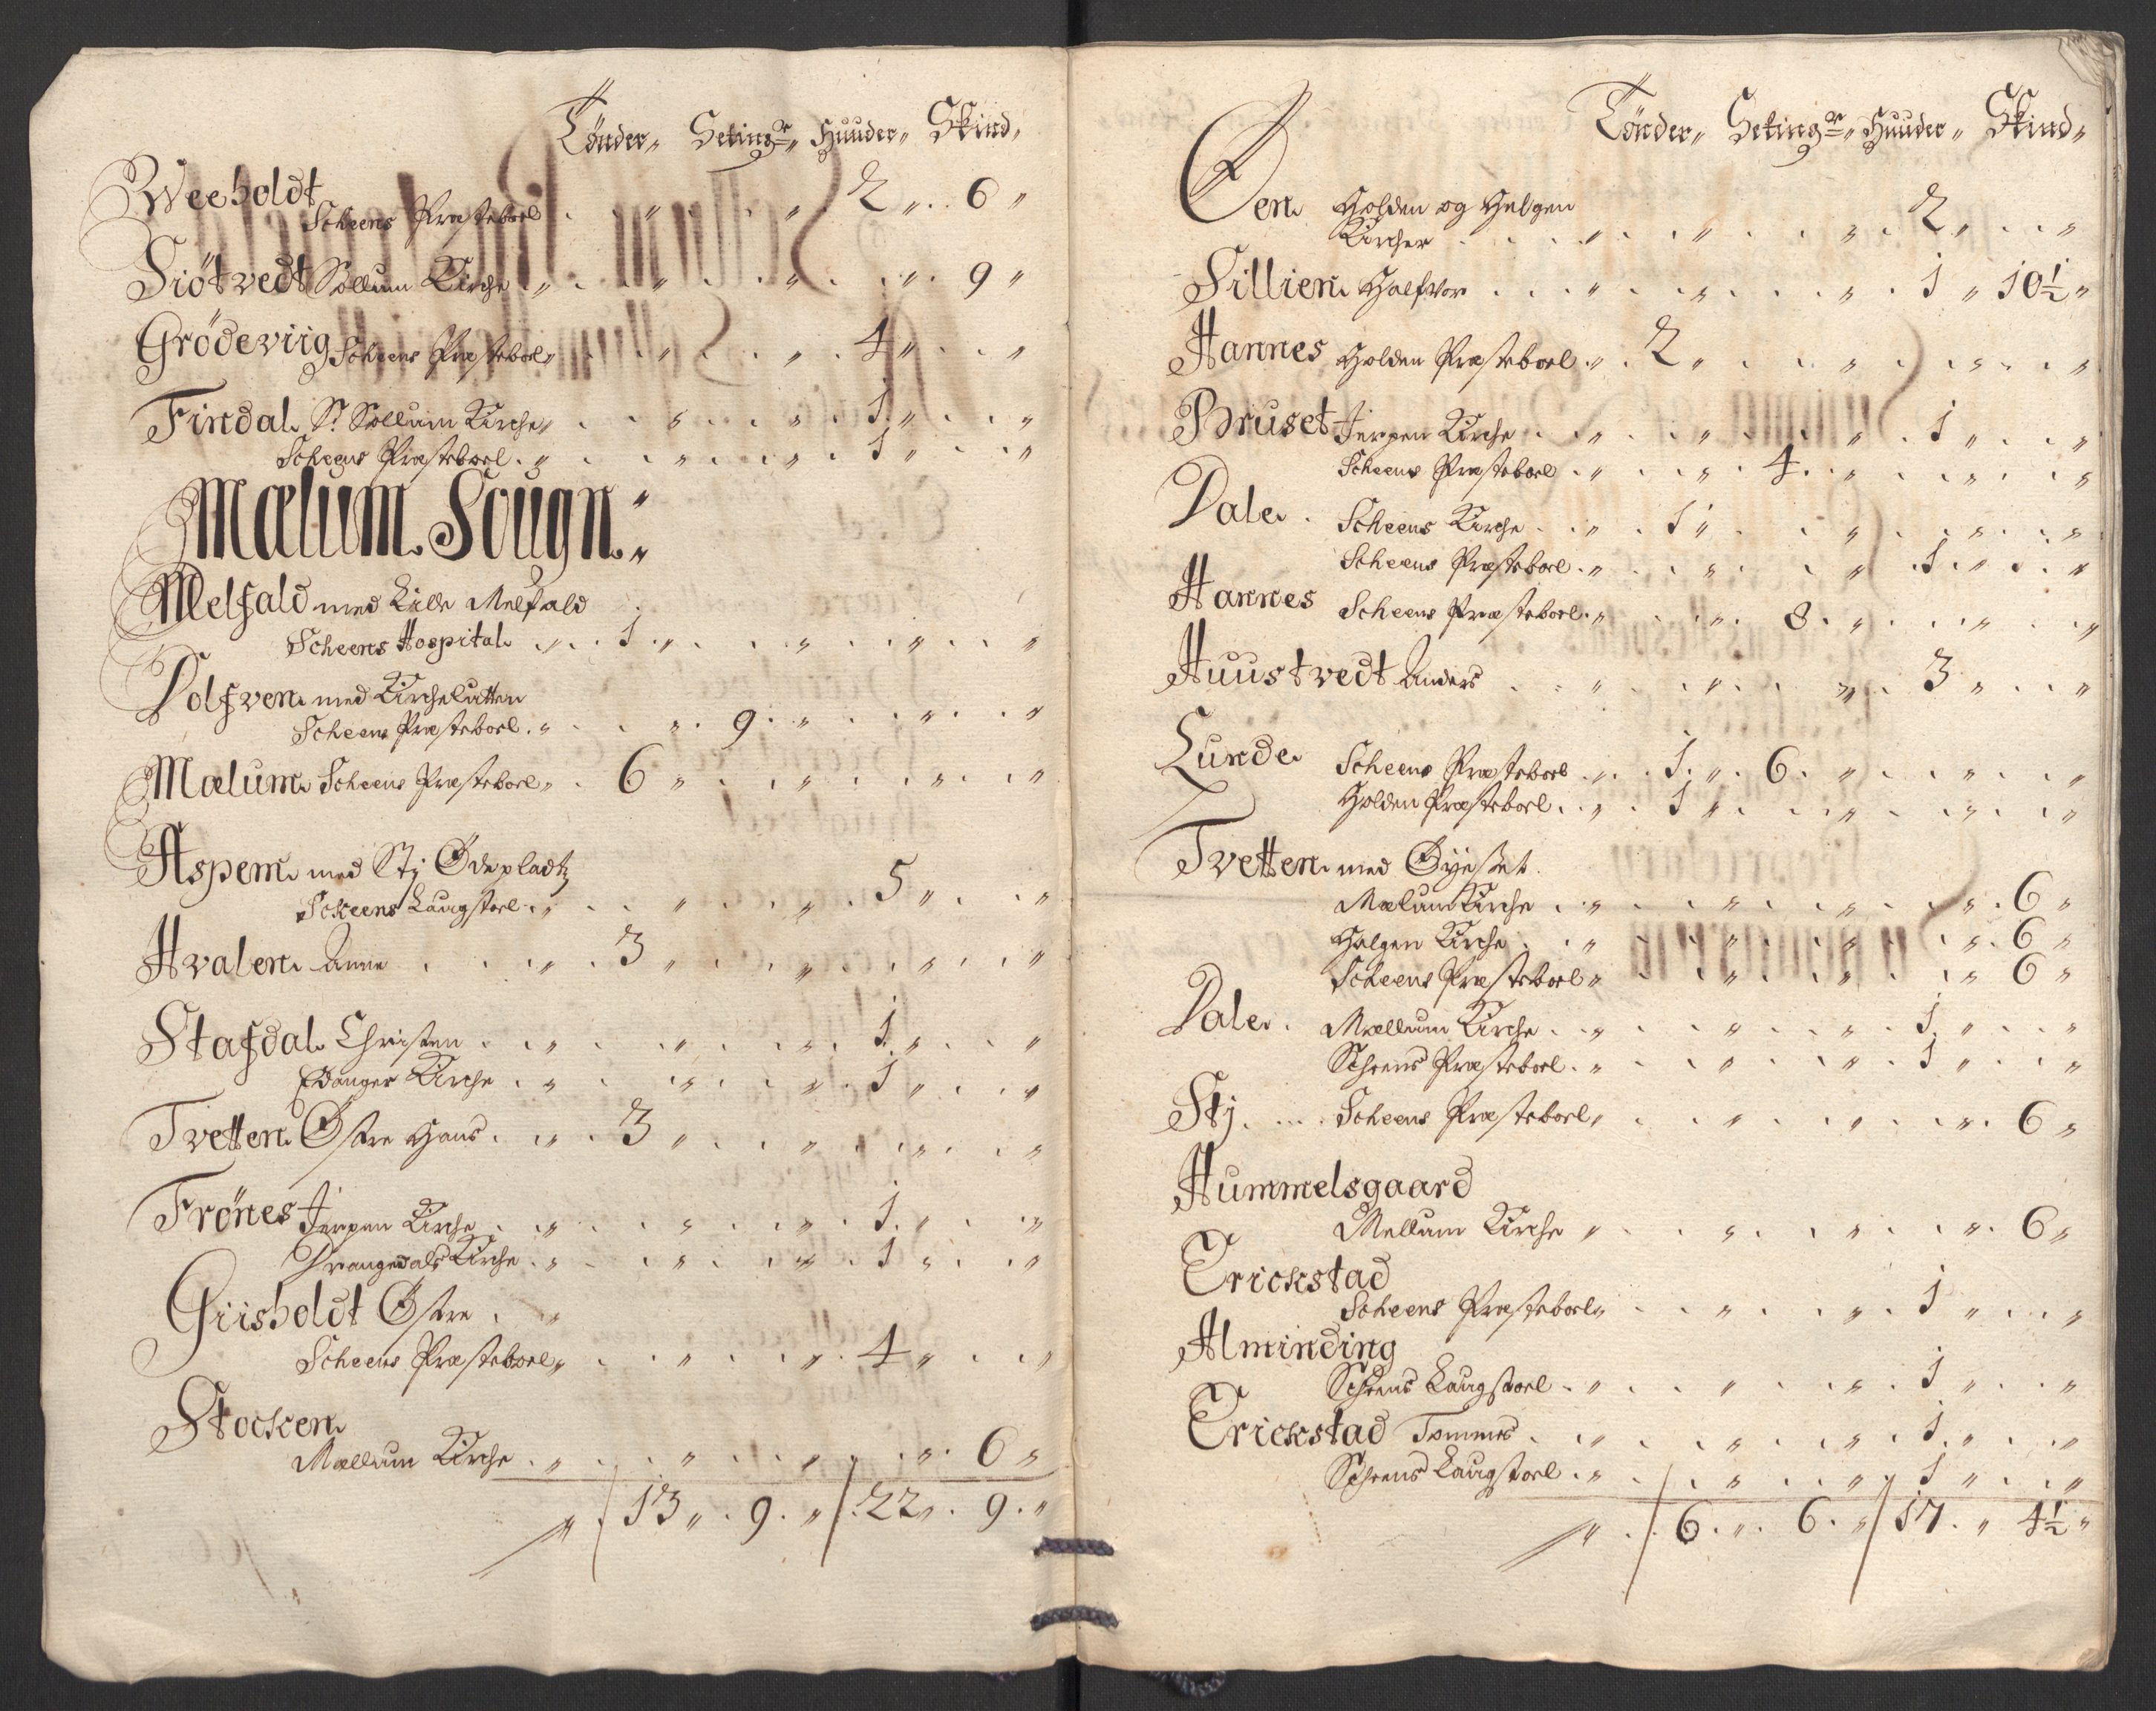 Tönder„ Seting„ Huuder„ Skind„
Weeholdt
Scheens Præsteboel . „ . „ . 2 „ . 6 „
Fiötvedt Sollum Kirche „ . „ . „ . „ . 9 „
Grödeviig Scheens Præsteboel „ . „ . „ . 4 „ . „
Findal St Sollum Kirche „ . „ . „ . 1 „ . „
Scheens Præsteboel . „ . „ . „ . 1 „ . „
Mælum Sougn
Melfald med Lille Melfald
Scheens Hospital „ . 1 „ . „ . „ . „
Dolfven med Kircheløtten
Scheens Præsteboel . „ . „ . 9 . „ . „ . „
Mælum Scheens Præsteboel „ . 6 „ . „ . „ . „
Aspem med Stj Ödepladtz
Scheens Laugstoel . „ . „ . „ . 5 „ . „
Hvalen Anne . „ . 3 „ . „ . „ . „
Stafdal Christen . „ . „ . „ . 1 „ . „
Edanger Kirche . „ . „ . „ . 1 „ . „
Tvetten Östre Hans . „ . 3 „ . „ . „ . „
Frönes Jerpen Kirche . „ . „ . „ . 1 „ . „
Drangedals Kirche . „ . „ . „ . 1 „ . „
Griisholdt Östre . „
Scheens Præsteboel „ . „ . „ . 4 „ . „
Stocken
Mællum Kirche . „ . „ . „ . „ . 6 „
„ . 13 „ . 9 . „ . 22 „ . 9 . „
Tönder„ Seting„ Huuder„ Skind„
Øen Holden og Helgen
Kircher . „ . „ . „ . 2 „ . „
Lillien Halfvor . „ . „ . „ . 1 „ 10½ „
Hannes Holden Præsteboel . „ . 2 „ . „ . „ . „
Bruset Jerpen Kirche . „ . „ . „ . 1 „ . „
Scheens Præsteboel . „ . „ . 4 . „ . „ . „
Dale . Scheens Kirche . „ . 1 „ . „ . „ . „
Scheens Præsteboel . „ . „ . „ . 1 „ . „
Hannes Scheens Præsteboel . „ . „ . 8 . „ . „ . „
Huustvedt Anders . „ . „ . „ . 3 „ . „
Lunde Scheens Præsteboel . „ . 1 . „ . 6 . „ . „ . „
Holden Præsteboel . „ . 1 „ . „ . „ . „
Tvetten med Öyeset
Mælum Kirche . „ . „ . „ . „ . 6 „
Helgen Kirche . „ . „ . „ . „ . 6 „
Scheens Præsteboel „ . „ . „ . „ 6 „
Dale . Mællum Kirche . „ . „ . „ . 1 „ . „
Scheens Præsteboel . „ . „ . „ . 1 „ . „
Stj . . . Scheens Præsteboel „ . „ . „ . „ . 6 „
Hummelsgaard
Mellum Kirche „ . „ . „ . „ . 6 „
Erickstad
Scheens Præsteboel „ . „ . „ . 1 „ . „
Alminding
Scheens Laugstoel . „ . „ . „ . 1 „ . „
Erickstad Tommes . „ . „ . „ . 1 „ . „
Scheens Laugstoel . „ . „ . „ . 1 „ . „
„ . 6 . „ . 6 . „ 17 . „ 4½ „